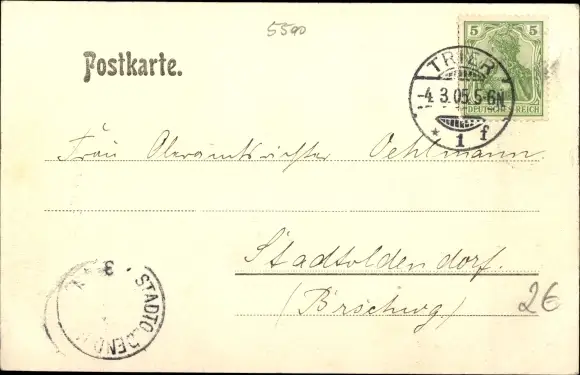 5500
Postkarte.
5 5
TRIER
-4.3.05.5-6N
DEUTSCHES REICH
* 1 f
Frau Oberamtsrichter Oehlmann
Stadtoldendorf.
(Brschwg)
2€
3
STADTOLDEND